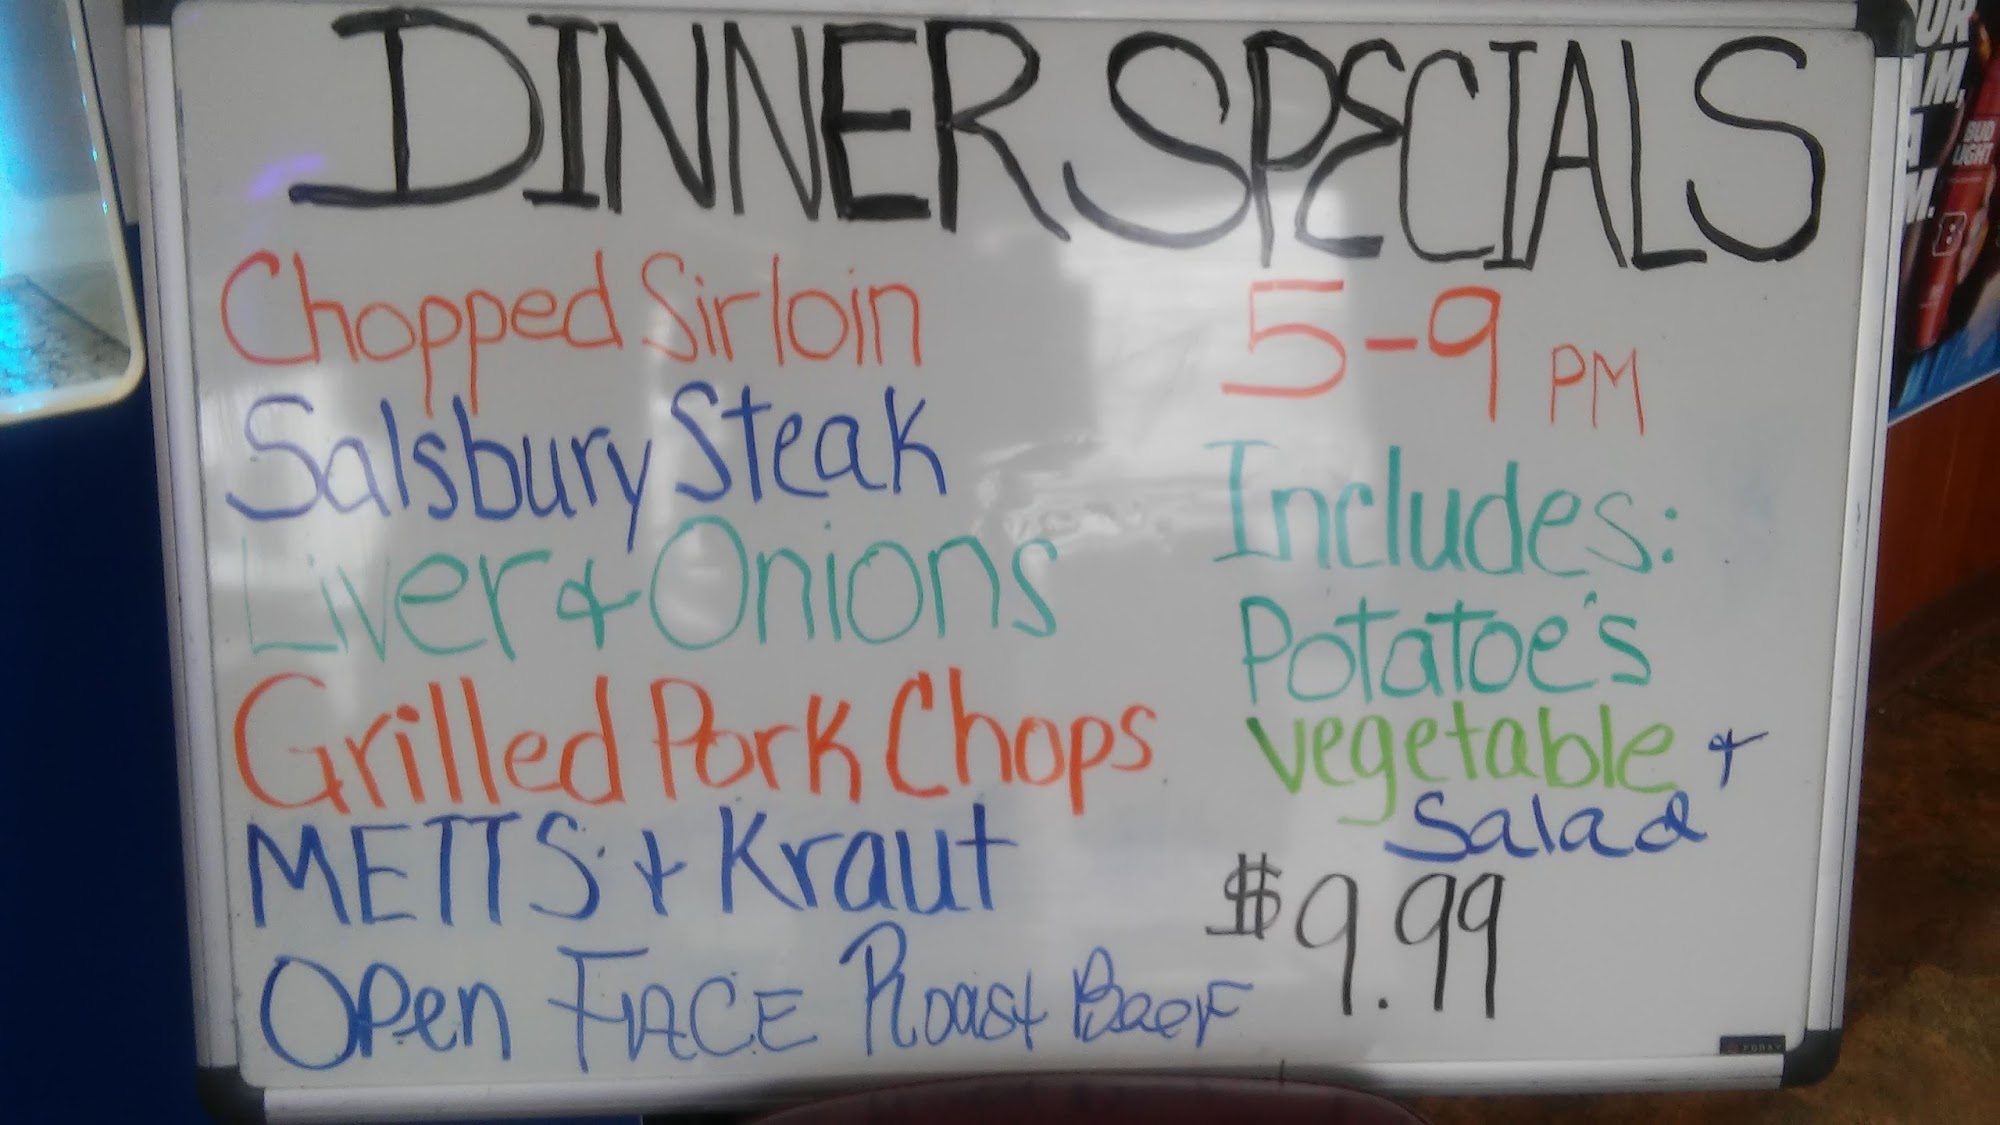 DINNER SPECIALS
Chopped Sirloin
Salsbury Steak
Liver & Onions
Grilled Pork Chops
METTS & Kraut
Open FACE Roast Beef
5-9 PM
Includes:
Potatoe's
vegetable &
Salad
$9.99
BUD
LIGHT